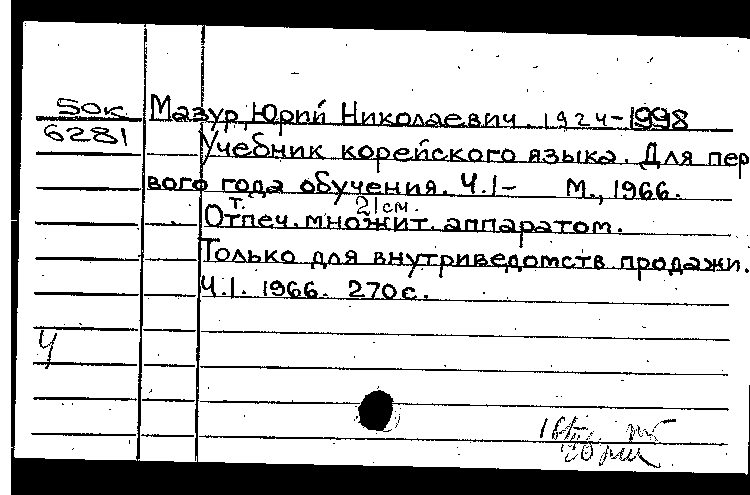 50к Мазур, Юрий Николаевич. 1924-1998
6281 Учебник корейского языка. Для пер
вого года обучения. Ч.1- М., 1966.
т. 21см.
Отпеч. множит. аппаратом.
Только для внутриведомств. продажи.
Ч.1. 1966. 270с.
Ч